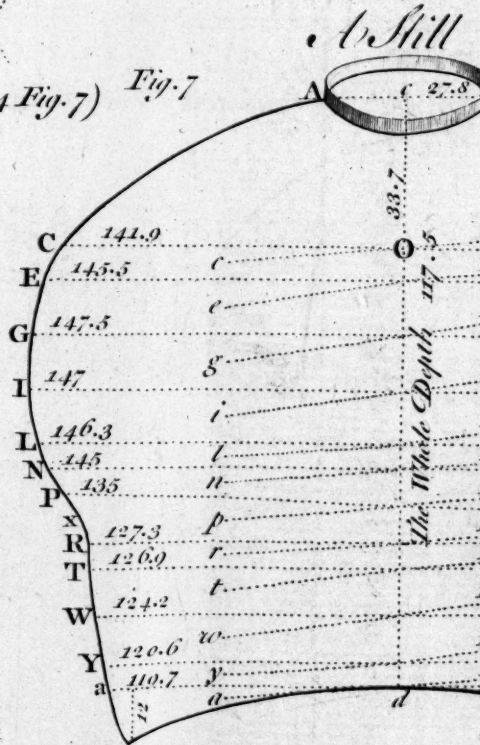 A Still
4 Fig. 7)
Fig. 7
A
c
27.8
33.7
C
141.9
O
c
E
145.5
e
G
147.5
g
I
147
i
L
146.3
l
N
145
n
P
135
p
x
R
127.3
r
T
126.9
t
W
124.2
w
Y
120.6
y
a
119.7
a
d
12
The Whole Depth 117.5